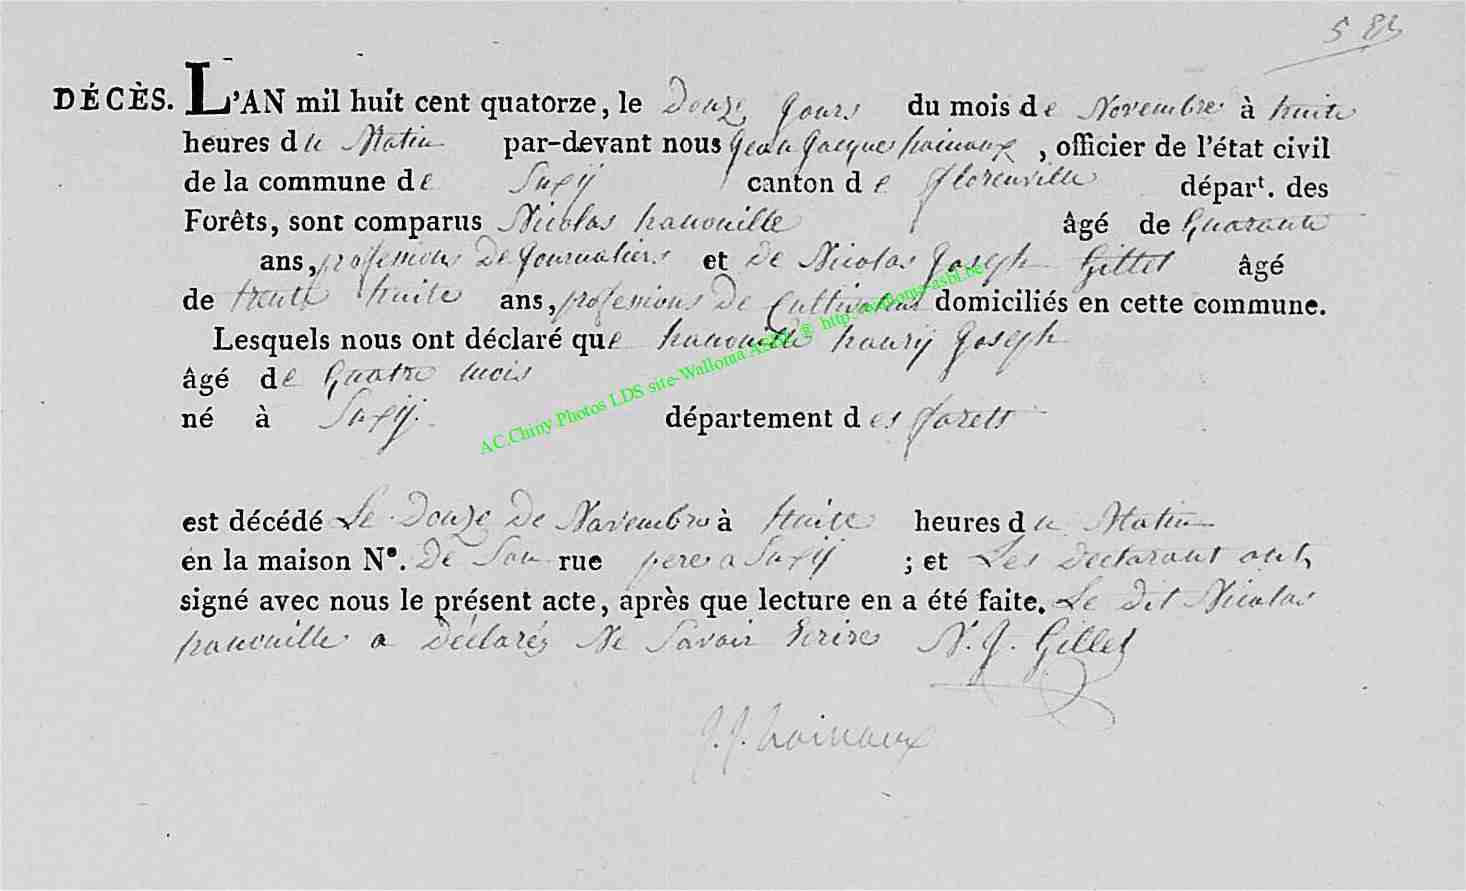 583
DÉCÈS. L'AN mil huit cent quatorze, le Douze jours du mois de Novembre à huite
heures du Matin par-devant nous jean jacques hainaux, officier de l'état civil
de la commune de Suxÿ canton de florenvilleépart. des
Forêts, sont comparus Nicolas hanouille âgé de Quarante
ans, professions De journaliers et de Nicolas Joseph Gillet âgé
de trente huite ans, professions De Cultivateur domiciliés en cette commune.
Lesquels nous ont déclaré que hanouille hanrÿ Joseph
âgé de Quatre mois
né à Suxÿ. département des forets
AC.Chiny Photos LDS site-Wallonia Asbl @ http://wallonia-asbl.be/
est décédé Le Douze De Novembre à Huite heures du Matin
en la maison N°. De Son rue pere a Suxÿ ; et Les declarant ont
signé avec nous le présent acte, après que lecture en a été faite. Le dit Nicolas
hanouille a Déclarés Ne Savoir Ecrire N. J. Gillet
J. J. hainaux